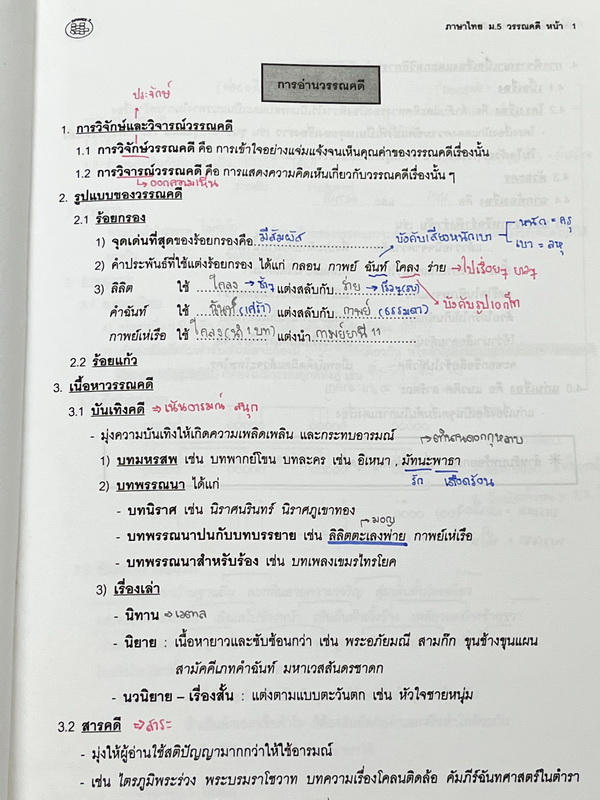 ภาษาไทย ม.5 วรรณคดี หน้า 1
การอ่านวรรณคดี
ประจักษ์
1. การวิจักษ์และวิจารณ์วรรณคดี
1.1 การวิจักษ์วรรณคดี คือ การเข้าใจอย่างแจ่มแจ้งจนเห็นคุณค่าของวรรณคดีเรื่องนั้น
1.2 การวิจารณ์วรรณคดี คือ การแสดงความคิดเห็นเกี่ยวกับวรรณคดีเรื่องนั้น ๆ
ออกความเห็น
2. รูปแบบของวรรณคดี
2.1 ร้อยกรอง
หนัก = ครุ
1) จุดเด่นที่สุดของร้อยกรองคือ มีสัมผัส บังคับเสียงหนักเบา
เบา = ลหุ
2) คำประพันธ์ที่ใช้แต่งร้อยกรอง ได้แก่ กลอน กาพย์ ฉันท์ โคลง ร่าย → ไปเรื่อยๆ ยาวๆ
3) ลิลิต ใช้ โคลง → ช้าๆ แต่งสลับกับ ร่าย → เร็วๆ(รบ) บังคับรูปเอกโท
คำฉันท์ ใช้ ฉันท์ (เศร้า) แต่งสลับกับ กาพย์ (ธรรมดา)
กาพย์เห่เรือ ใช้ โคลง( 1 บท) แต่งนำ กาพย์ยานี 11
2.2 ร้อยแก้ว
3. เนื้อหาวรรณคดี
3.1 บันเทิงคดี ⇒ เน้นอารมณ์ สนุก
- มุ่งความบันเทิงให้เกิดความเพลิดเพลิน และกระทบอารมณ์ → ตำนานดอกกุหลาบ
1) บทมหรสพ เช่น บทพากย์โขน บทละคร เช่น อิเหนา , มัทนะพาธา
2) บทพรรณนา ได้แก่ รัก เดือดร้อน
- บทนิราศ เช่น นิราศนรินทร์ นิราศภูเขาทอง
→ มอญ
- บทพรรณนาปนกับบทบรรยาย เช่น ลิลิตตะเลงพ่าย กาพย์เห่เรือ
- บทพรรณนาสำหรับร้อง เช่น บทเพลงเขมรไทรโยค
3) เรื่องเล่า
- นิทาน → เวตาล
- นิยาย : เนื้อหายาวและซับซ้อนกว่า เช่น พระอภัยมณี สามก๊ก ขุนช้างขุนแผน
สามัคคีเภทคำฉันท์ มหาเวสสันดรชาดก
- นวนิยาย – เรื่องสั้น : แต่งตามแบบตะวันตก เช่น หัวใจชายหนุ่ม
3.2 สารคดี ⇒ สาระ
- มุ่งให้ผู้อ่านใช้สติปัญญามากกว่าให้ใช้อารมณ์
- เช่น ไตรภูมิพระร่วง พระบรมราโชวาท บทความเรื่องโคลนติดล้อ คัมภีร์ฉันทศาสตร์ในตำรา